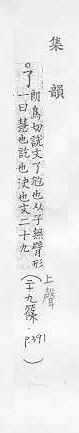 集韻
。了 朗鳥切說文了尥也从子無臂形
一曰慧也訖也決也文二十九
上聲
(二十九篠 P391)